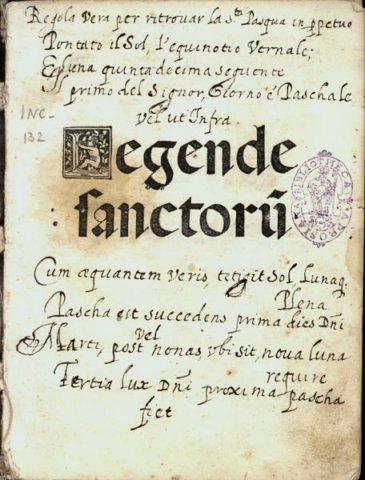 Regola vera per ritrovar la s.ta Pasqua in ppetuo
Pontato il Sol, l'equinotio Vernale;
Et luna quinta decima sequente
primo del Signor, Giorno é Paschale
vel ut Infra.
INC-
132
Legende
sanctorū
Cum æquantem veris, tetigit Sol, Lunaq.
Plena
Pascha est succedens prima dies Dñi
vel
Marti, post nonas, ubi sit, nova luna
require
Tertia lux Dñi proxima pascha
fiet